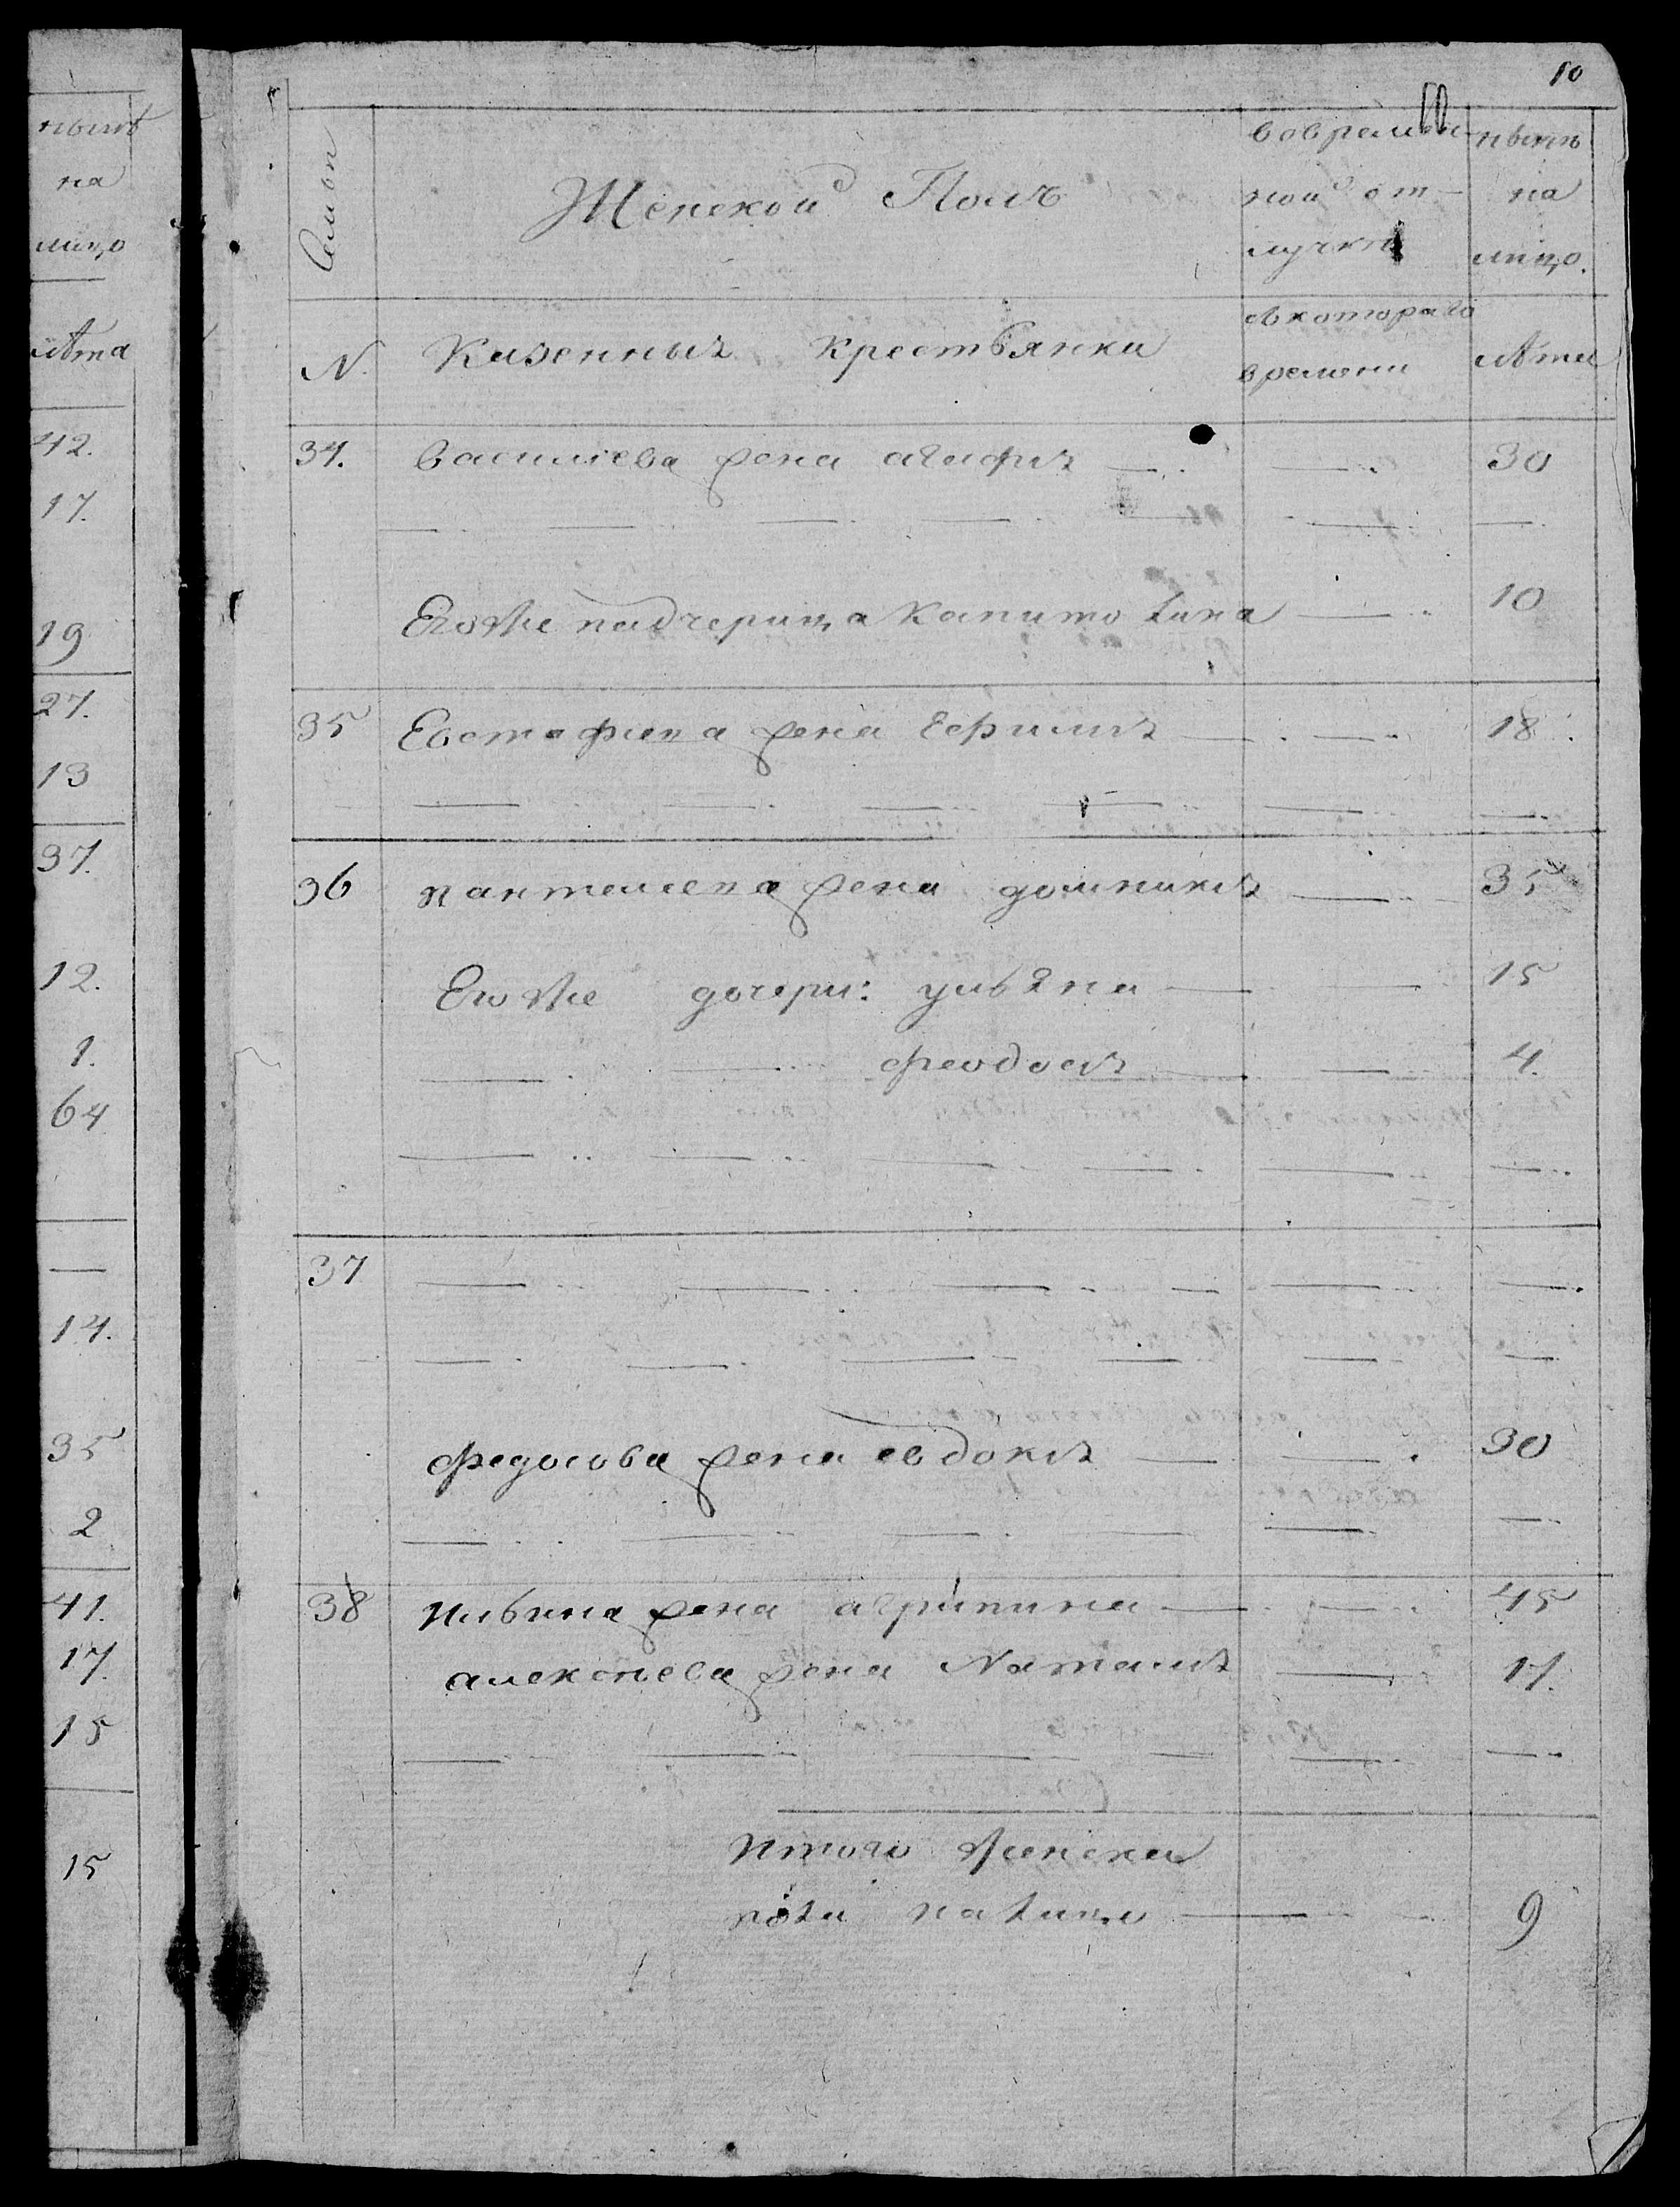 нынѣ
на
лицо
лѣта
42.
17.
19
27.
13
37.
12.
1.
64
14.
35
2
41.
17.
15
15
10
Семьи
Женской Полъ
во времен-
ной от-
лучкѣ
нынѣ
на
лицо.
N.
Казенныя Крестьянки
съ котораго
времени
лѣта
34. Василиева жена агафия 30
Его же падчерица Капитолина 10
35 Евстафиева жена Ефимия 18
36 пантелеева жена домникия 35
Его же дочери: ульяна 15
феодосия 4.
37
федосова жена евдокия 30
38 Ильина жена агрипина 45
алексѣева жена Наталия 17.
Итого женска
пола на лицо 9